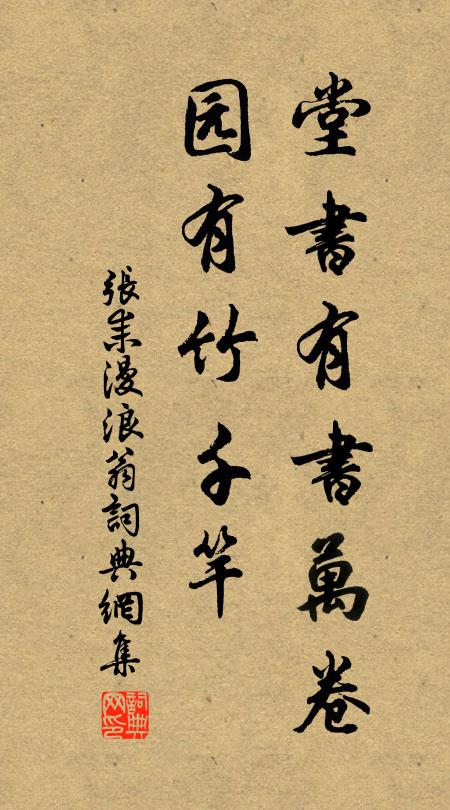 堂書有書萬卷
园有竹千竿
張耒漫浪翁詞典網集
詞典网印